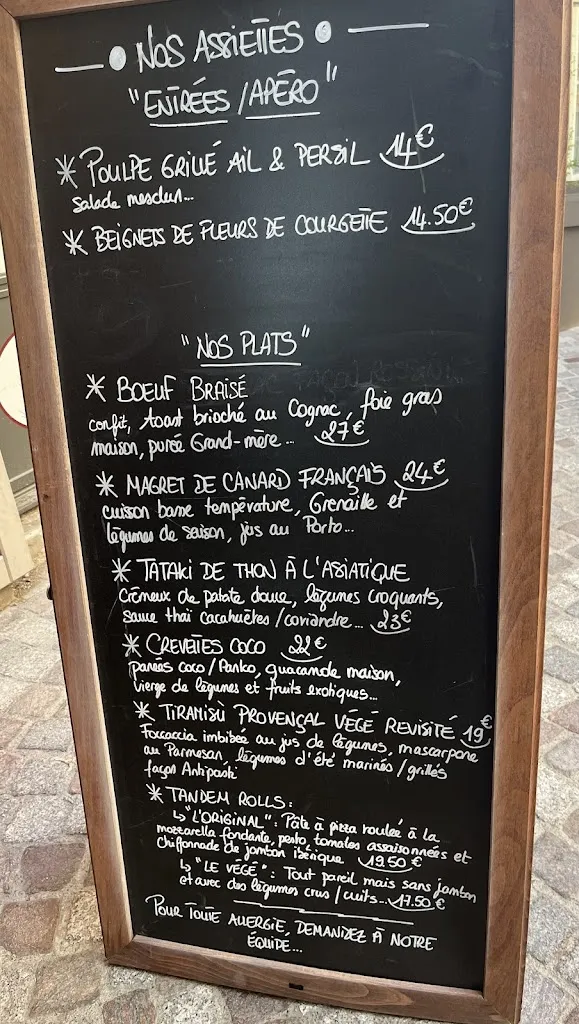 NOS ASSIETTES
"ENTRÉES / APÉRO"
* POULPE GRILLÉ AIL & PERSIL 14€
Salade mesclun...
* BEIGNETS DE FLEURS DE COURGETTE 14.50€
"NOS PLATS"
* BOEUF BRAISÉ
confit, toast brioché au Cognac, foie gras
maison, purée Grand-mère... 27€
* MAGRET DE CANARD FRANÇAIS 24€
cuisson basse température, Grenaille et
légumes de saison, jus au Porto...
* TATAKI DE THON À L'ASIATIQUE
Crémeux de patate douce, légumes croquants,
sauce thaï cacahuètes / coriandre... 23€
* CREVETTES COCO 22€
panées coco / Panko, guacamole maison,
vierge de légumes et fruits exotiques...
* TIRAMISÙ PROVENÇAL VÉGÉ REVISITÉ 19€
Foccaccia imbibée au jus de légumes, mascarpone
au Parmesan, légumes d'été marinés / grillés
façon Antipasti
* TANDEM ROLLS:
↳ "L'ORIGINAL": Pâte à pizza roulée à la
mozzarella fondante, pesto, tomates assaisonnées et
chiffonnade de jambon ibérique 19.50€
↳ "LE VÉGÉ": Tout pareil mais sans jambon
et avec des légumes crus / cuits... 17.50€
POUR TOUTE ALLERGIE, DEMANDEZ À NOTRE
ÉQUIPE...